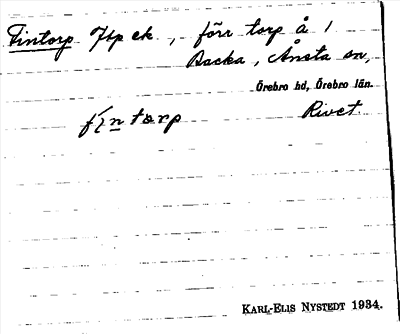 Fintorp Jfp ek., förr torp å 1
Backa, Ånsta sn,
Örebro hd, Örebro län.
Rivet.
fíntorp
KARL-ELIS NYSTEDT 1934.